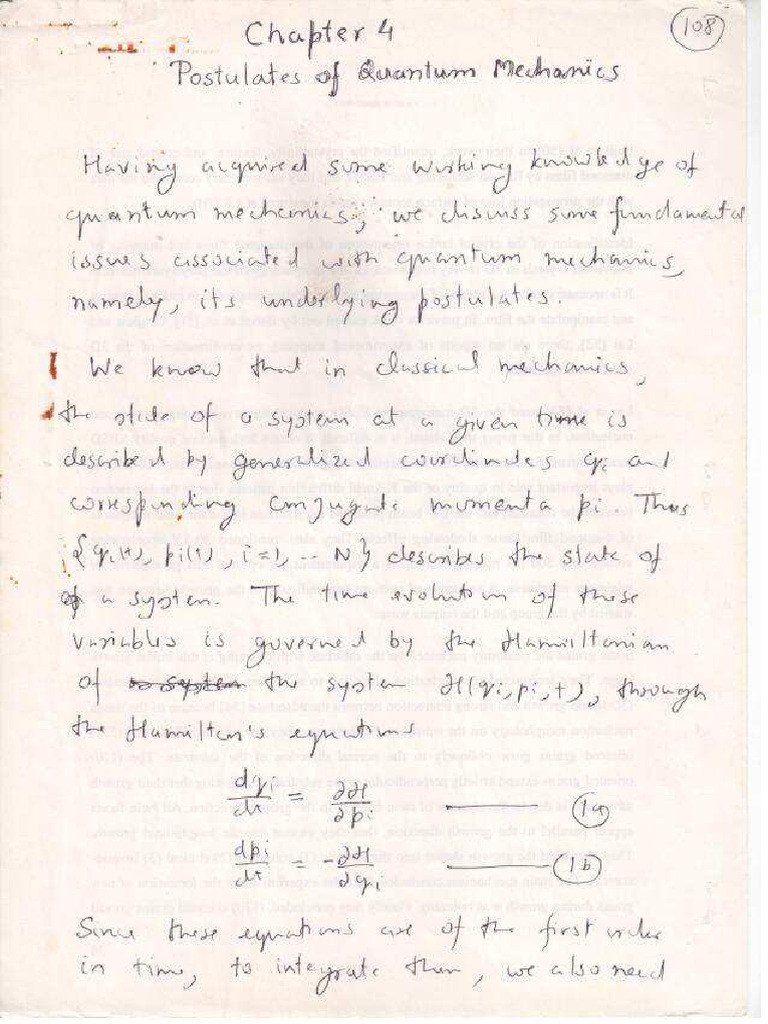 108
Chapter 4
Postulates of Quantum Mechanics
Having acquired some working knowledge of
quantum mechanics, we discuss some fundamental
issues associated with quantum mechanics,
namely, its underlying postulates.
We know that in classical mechanics,
the state of a system at a given time is
described by generalized coordinates qi and
corresponding conjugate momenta pi. Thus
{qi(t), pi(t), i=1, -- N} describes the state of
of a system. The time evolution of these
variables is governed by the Hamiltonian
of system the system H(qi, pi, t), through
the Hamilton's equations
dqi/dt = ∂H/∂pi ——— (1a)
dpi/dt = -∂H/∂qi ——— (1b)
Since these equations are of the first order
in time, to integrate them, we also need